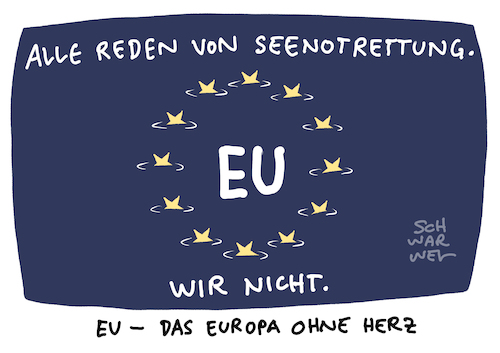 ALLE REDEN VON SEENOTRETTUNG.
EU
SCH
WAR
WEL
WIR NICHT.
EU – DAS EUROPA OHNE HERZ